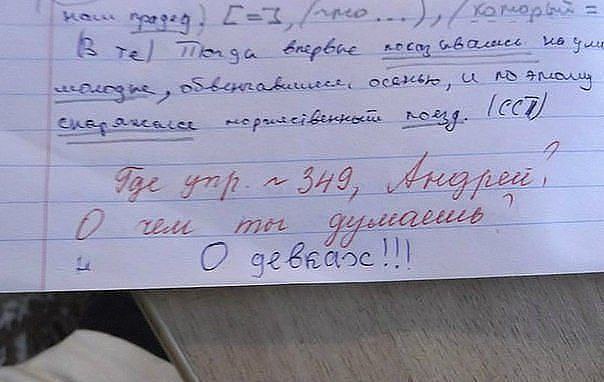 наш прадед), [=], (что...), (который =
(В те) Тогда впервые показывались на ули
молодые, обвенчавшиеся осенью, и по этому
снаряжался торжественный поезд. (ССП)
Где упр. ~ 349, Андрей?
О чем ты думаешь?
О девках!!!